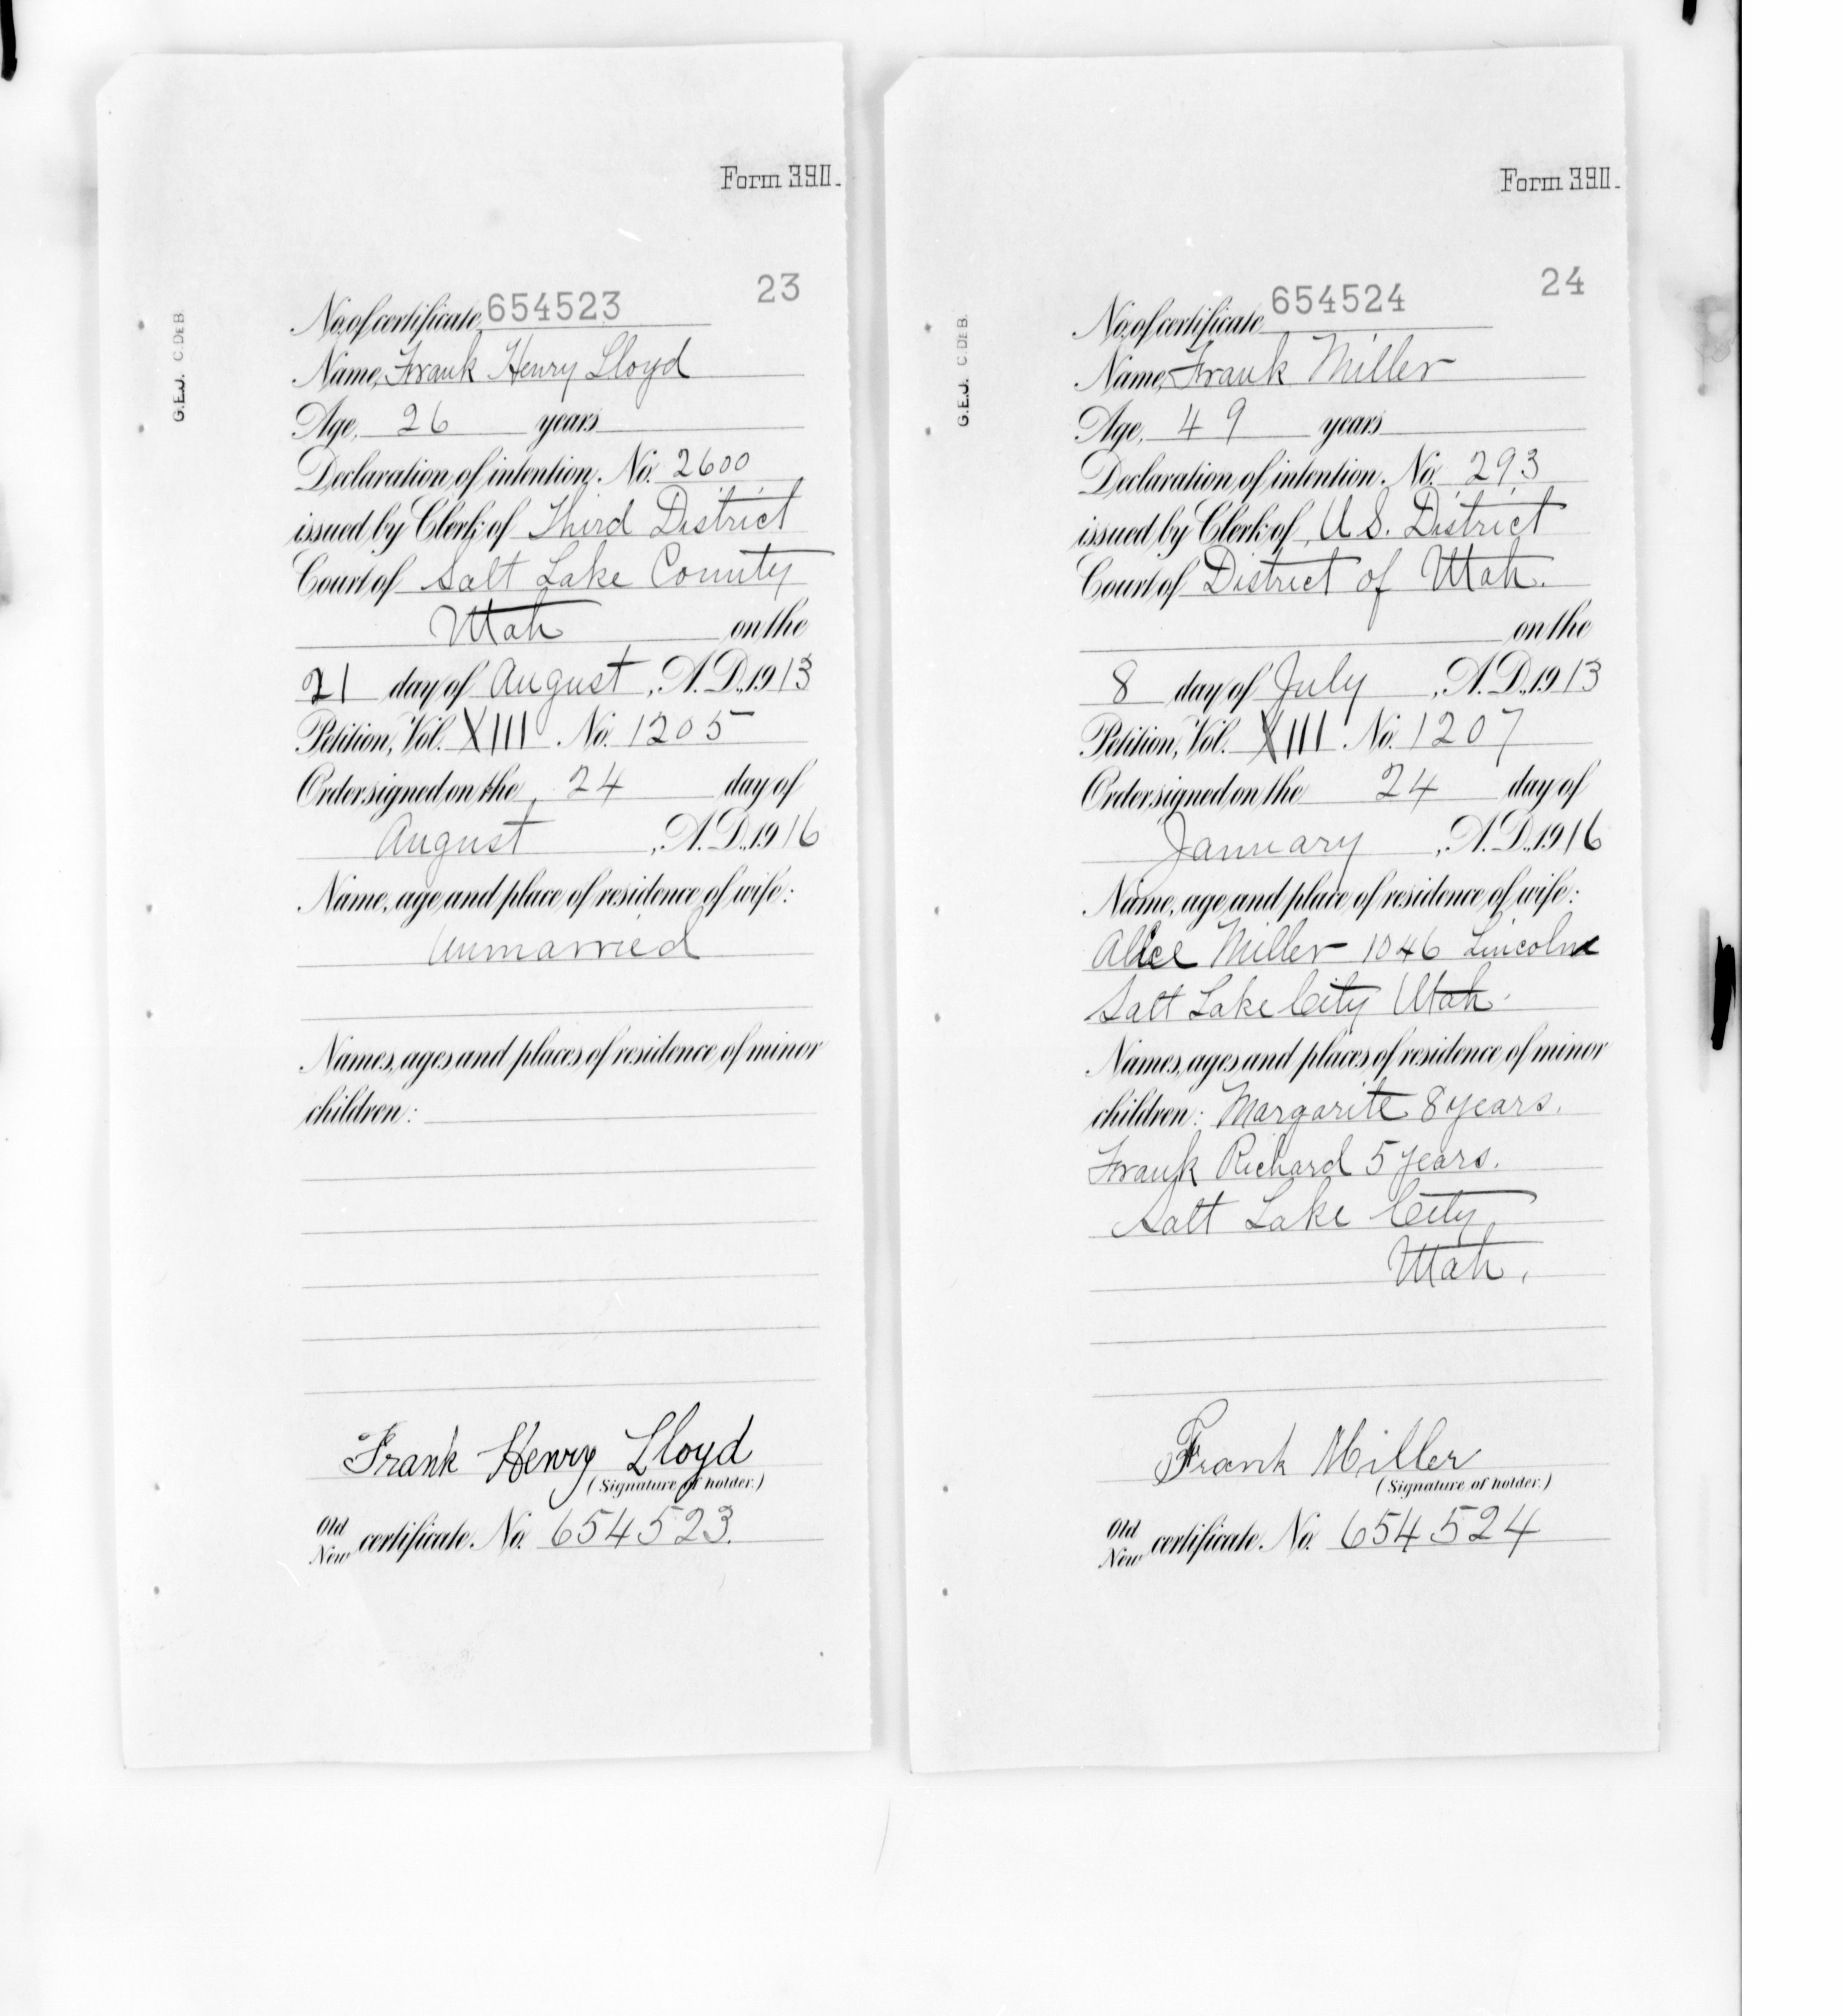 Form 390.
23
No. of certificate, 654523
Name, Frank Henry Lloyd
Age, 26 years
Declaration of intention, No. 2600
issued by Clerk of Third District
Court of Salt Lake County
Utah on the
21 day of August, A. D., 1913
Petition, Vol. XIII. No. 1205
Order signed on the 24 day of
August, A. D., 1916
Name, age and place of residence of wife:
Unmarried
Names, ages and places of residence of minor
children:
Frank Henry Lloyd
(Signature of holder.)
Old
New certificate, No. 654523.
G.E.J. C. DE B.
Form 390.
24
No. of certificate 654524
Name, Frank Miller
Age, 49 years
Declaration of intention, No. 293
issued by Clerk of U S. District
Court of District of Utah.
on the
8 day of July, A. D., 1913
Petition, Vol. XIII. No. 1207
Order signed on the 24 day of
January, A. D., 1916
Name, age and place of residence of wife:
Alice Miller 1046 Lincoln
Salt Lake City Utah.
Names, ages and places of residence of minor
children: Margarite 8 years.
Frank Richard 5 years.
Salt Lake City
Utah.
Frank Miller
(Signature of holder.)
Old
New certificate, No. 654524
G.E.J. C. DE B.